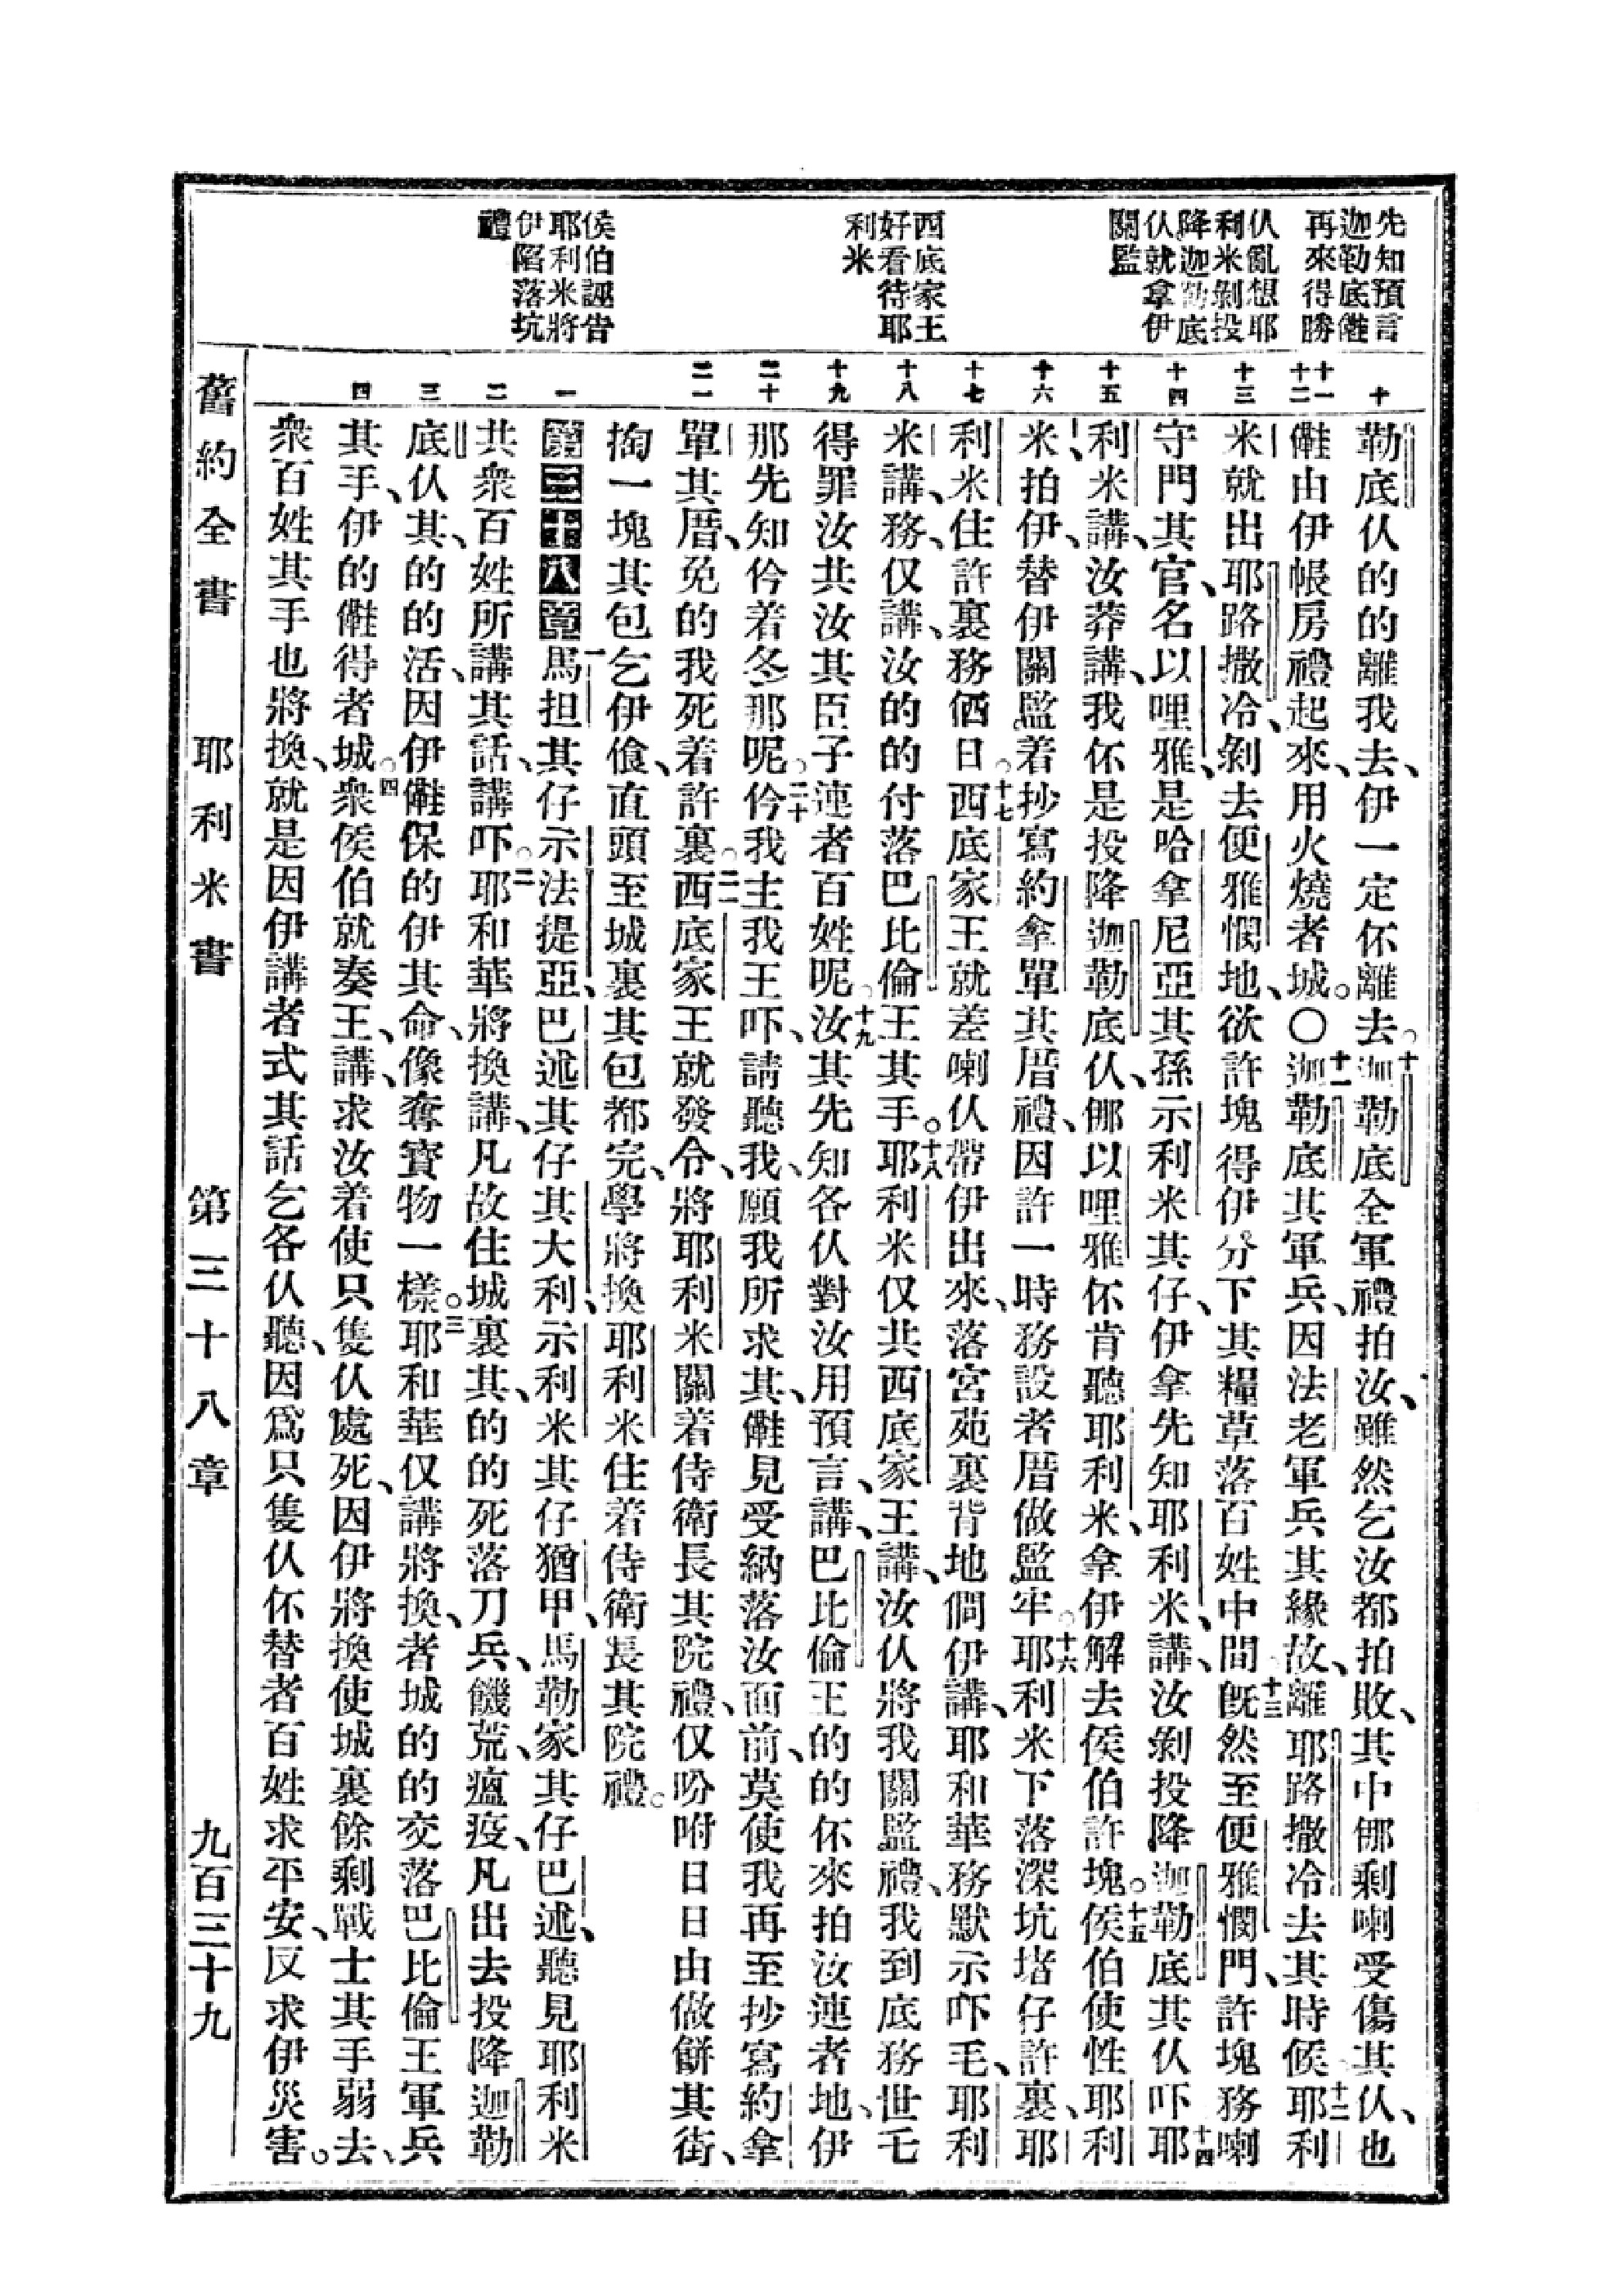 先知預言
迦勒底𠆧
再來得勝
仈亂想耶
利米剝投
降迦勒底
仈就拿伊
關監
西底家王
好看待耶
利米
侯伯誣告
耶利米將
伊陷落坑
禮
十
十一
十二
十三
十四
十五
十六
十七
十八
十九
二十
二一
一
二
三
四
勒底仈的的離我去、伊一定伓離去。十迦勒底全軍禮拍汝、雖然乞汝都拍敗、其中㑚剩喇受傷其仈、也
𠆧由伊帳房禮起來、用火燒者城。〇十一迦勒底其軍兵、因法老軍兵其緣故、離耶路撒冷去其時候、十二耶利
米就出耶路撒冷、剝去便雅憫地、欲許塊得伊分下其糧草落百姓中間。十三旣然至便雅憫門、許塊務喇
守門其官、名以哩雅、是哈拿尼亞其孫示利米其仔、伊拿先知耶利米、講、汝剝投降迦勒底其仈吓。十四耶
利米講、汝莽講、我伓是投降迦勒底仈、㑚以哩雅伓肯聽耶利米、拿伊解去侯伯許塊。十五侯伯使性耶利
米、拍伊、替伊關監着抄寫約拿單其厝禮、因許一時務設者厝做監牢。十六耶利米下落深坑堵仔許裏、耶
利米住許裏務㑄日。十七西底家王就差喇仈帶伊出來、落宮苑裏背地僩伊講、耶和華務默示吓毛、耶利
米講、務、仅講、汝的的付落巴比倫王其手。十八耶利米仅共西底家王講、汝仈將我關監禮、我到底務世乇
得罪汝共汝其臣子連者百姓呢。十九汝其先知各仈對汝用預言、講、巴比倫王的的伓來拍汝連者地、伊
那先知仱着冬那呢。二十仱我主我王吓、請聽我、願我所求其、𠆧見受納落汝面前、莫使我再至抄寫約拿
單其厝、免的我死着許裏。二一西底家王就發令、將耶利米關着侍衛長其院禮、仅吩咐日日由做餅其街、
掏一塊其包乞伊飡、直頭至城裏其包都完、學將換耶利米住着侍衛長其院禮。
第三十八章 一馬担其仔示法提亞、巴述其仔其大利、示利米其仔猶甲、馬勒家其仔巴述、聽見耶利米
共衆百姓所講其話、講吓。二耶和華將換講、凡故住城裏其、的的死落刀兵、饑荒、瘟疫、凡出去投降迦勒
底仈其、的的活、因伊𠆧保的伊其命、像奪寶物一樣。三耶和華仅講將換、者城的的交落巴比倫王軍兵
其手、伊的𠆧得者城。四衆侯伯就奏王、講、求汝着使只隻仈處死、因伊將換使城裏餘剩戰士其手弱去、
衆百姓其手也將換、就是因伊講者式其話乞各仈聽、因爲只隻仈伓替者百姓求平安、反求伊災害。
舊約全書 耶利米書 第三十八章 九百三十九